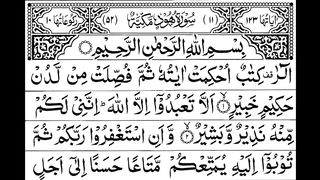 اٰیَاتُهَا ۱۲۳ (۱۱) سُوْرَةُ هُوْدٍ مَّكِّيَّةٌ (۵۲) رُكُوْعَاتُهَا ۱۰
بِسْمِ اللّٰهِ الرَّحْمٰنِ الرَّحِيْمِ
الٓرٰ كِتٰبٌ اُحْكِمَتْ اٰيٰتُهٗ ثُمَّ فُصِّلَتْ مِنْ لَّدُنْ
حَكِيْمٍ خَبِيْرٍ ۙ﴿۱﴾ اَلَّا تَعْبُدُوْٓا اِلَّا اللّٰهَ ؕ اِنَّنِيْ لَكُمْ
مِّنْهُ نَذِيْرٌ وَّبَشِيْرٌ ۙ﴿۲﴾ وَّاَنِ اسْتَغْفِرُوْا رَبَّكُمْ ثُمَّ
تُوْبُوْٓا اِلَيْهِ يُمَتِّعْكُمْ مَّتَاعًا حَسَنًا اِلٰٓى اَجَلٍ